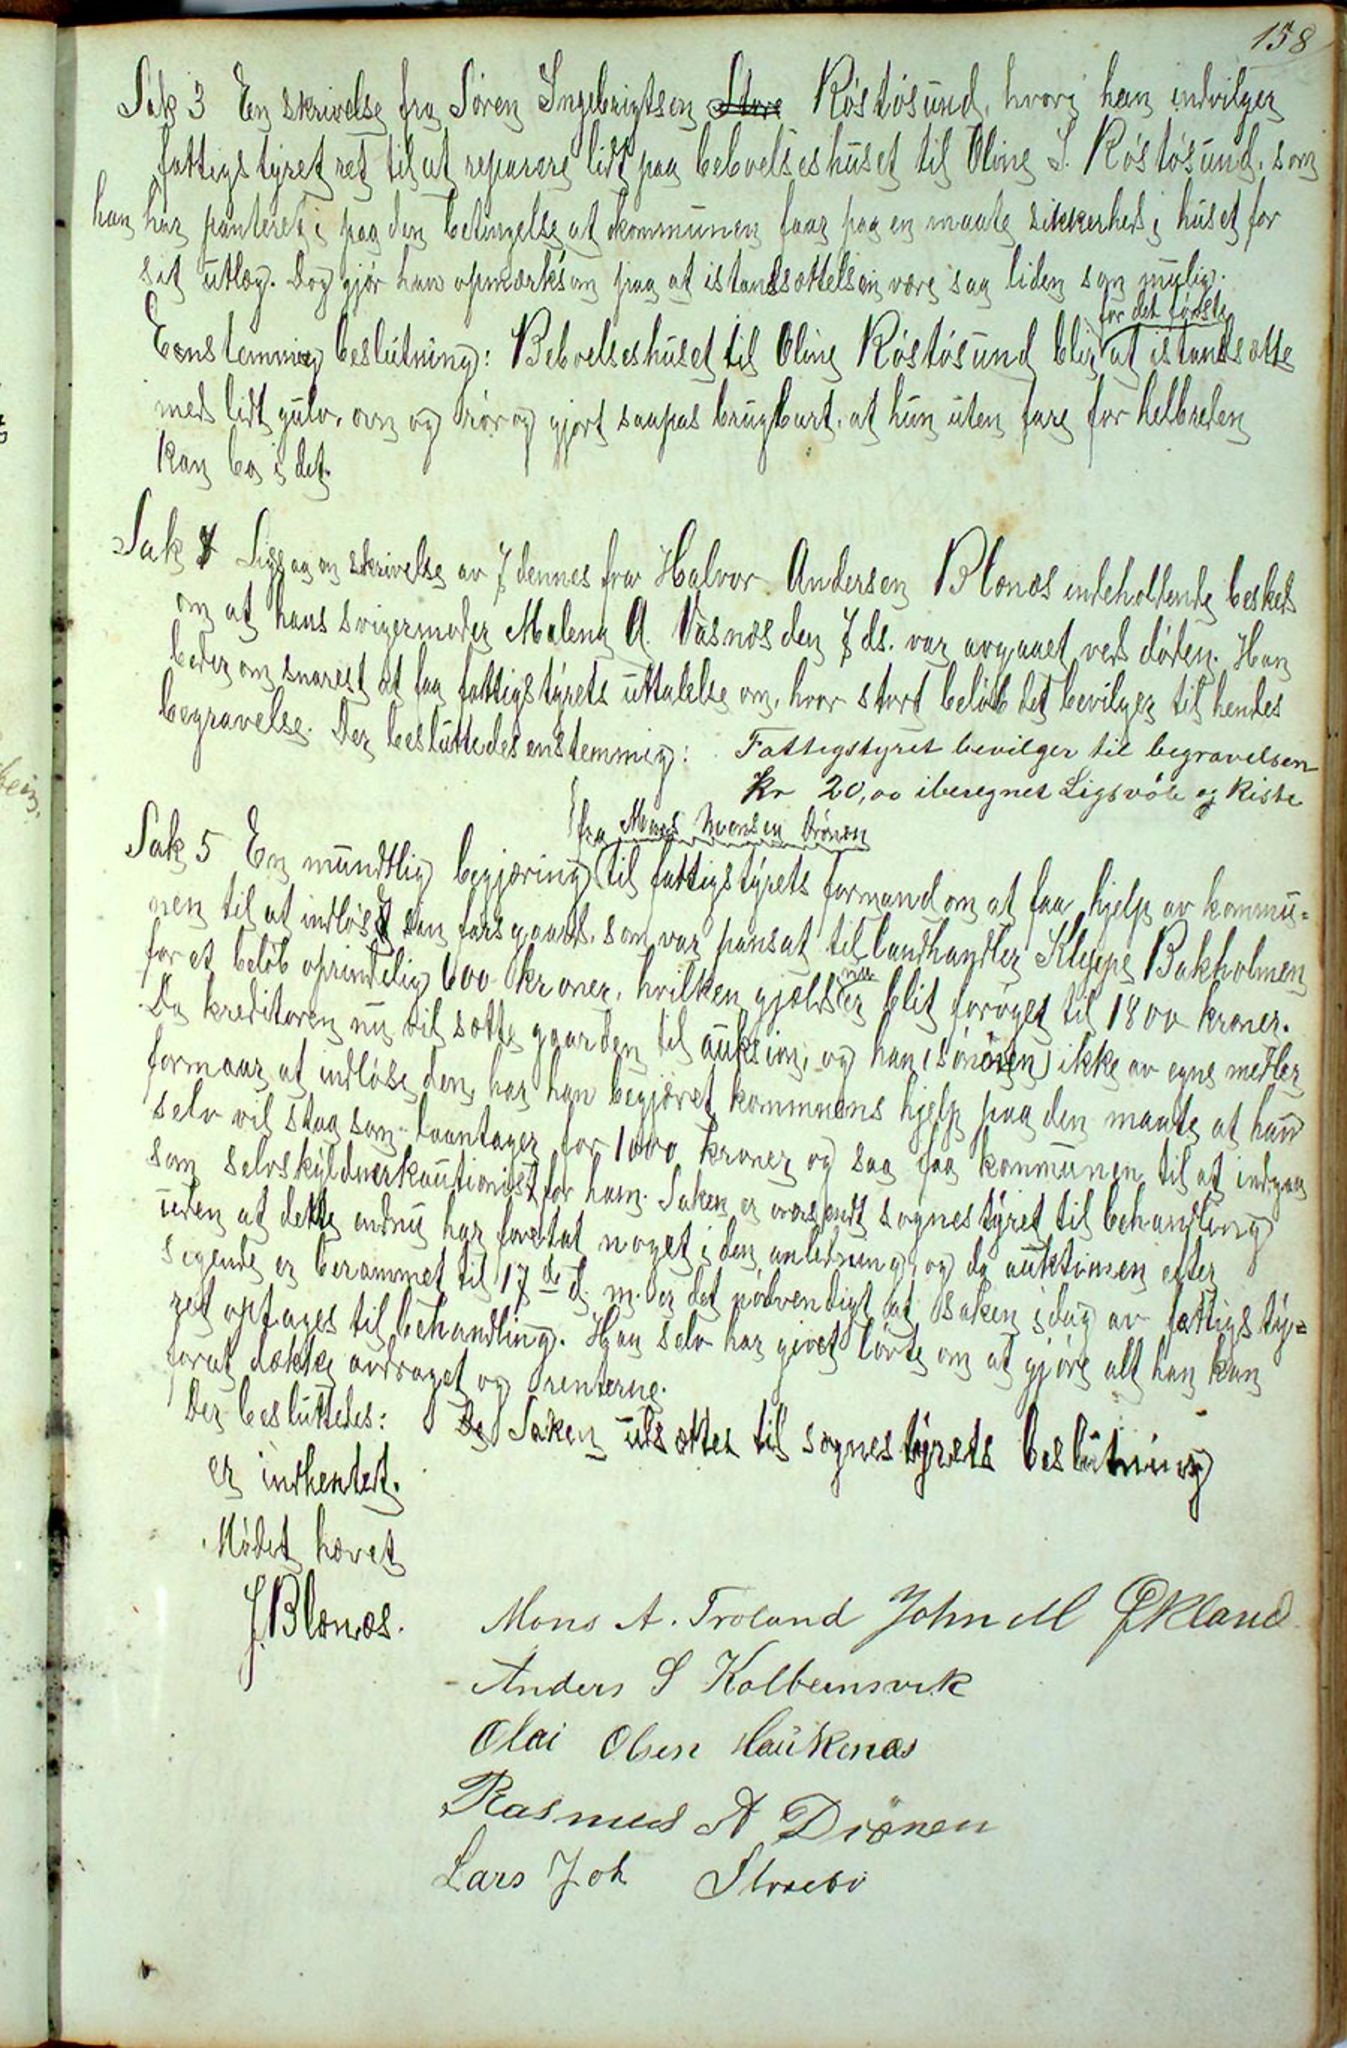 158
Sak 3 En skrivelse fra Søren Ingebrigtsen Røstøsund, hvori han indvilger
fattigstyret ret til at reparere lidt paa beboelseshuset til Oline S. Røstøsund, som
han har panteret i paa den betingelse at kommunen faar paa en maate sikkerhed i huset for
sit utlæg. Dog gjør han opmærksom paa at istandsættelsen være saa liden som mulig.
for det første
Eenstemmig beslutning: Bebvelseshuset til Oline Røstøsund blir at istandsætte
med lidt gulv, ovn og rør og gjort saapas brugbart, at hun uten fare for helbreden
kan bo i det.
Sak 4 Ligsaa en skrivelse av 7 dennes fra Halvor Andersen Blænæs indeholdende besked
om at hans svigermoder Malena A. Vasnæs den 7 ds. var avgaaet ved døden. Han
beder om snarest at faa fattigstyrets uttalelse om, hvor stort beløb det bevilger til hendes
begravelse. Der besluttedes enstemmig: Fattigstyret bevilger til begravelsen
kr 20,00 iberegnet Ligsvøb og Kiste
fra Mons Monsen Drönen
Sak 5 En mundtlig begjæring til fattigstyrets formand om at faa hjelp av kommu=
nen til at indløse sin farsgaard, som var pansat til landhandler Kleppe Bakholmen
for et beløb oprindelig 600 kroner, hvilken gjæld nu er blit forøget til 1800 kroner.
Da kreditoren nu vil sætte gaarden til auksion, og han (sønnen) ikke av egne midler
formaar at indløse den, har han begjæret kommunens hjelp paa den maate at han
selv vil staa som laantager for 1000 kroner og saa faa kommunen til at indgaa
som selvskyldnerkautionist for ham. Saken er oversendt sognestyret til behandling
uden at dette endnu har foretat noget i den anledning, og da auktionen efter
sigende er berammet til 17de d. m. er det nødvendigt at saken idag av fattigsty=
ret optages til behandling. Han selv har givet løvte om at gjøre alt han kan
forat dække avdraget og renterne.
Der besluttedes: Saken utsættes til sognestyrets beslutning
er indhentet.
Mødet hævet
J. Blænæs. Mons A. Troland John M Økland
Anders S Kolbeinsvik
Olai Olsen Haukenæs
Rasmus A Drønen
Lars Joh Storebø